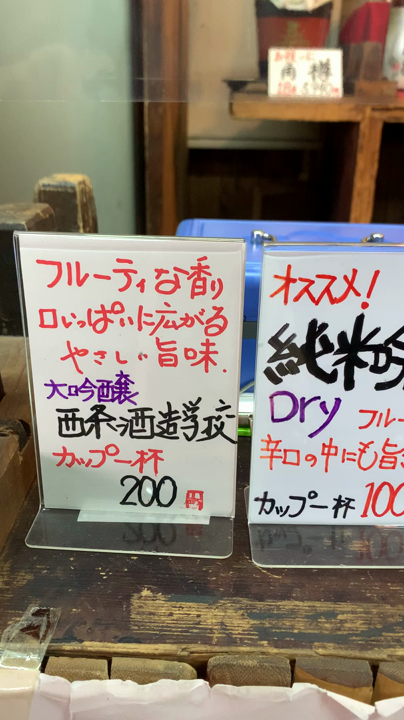 フルーティな香り
口いっぱいに広がる
やさしい旨味.
大吟醸
西条酒造学校
カップ一杯
200円
オススメ!
純米吟
Dry フルー
辛口の中にも旨
カップ一杯 100
樽